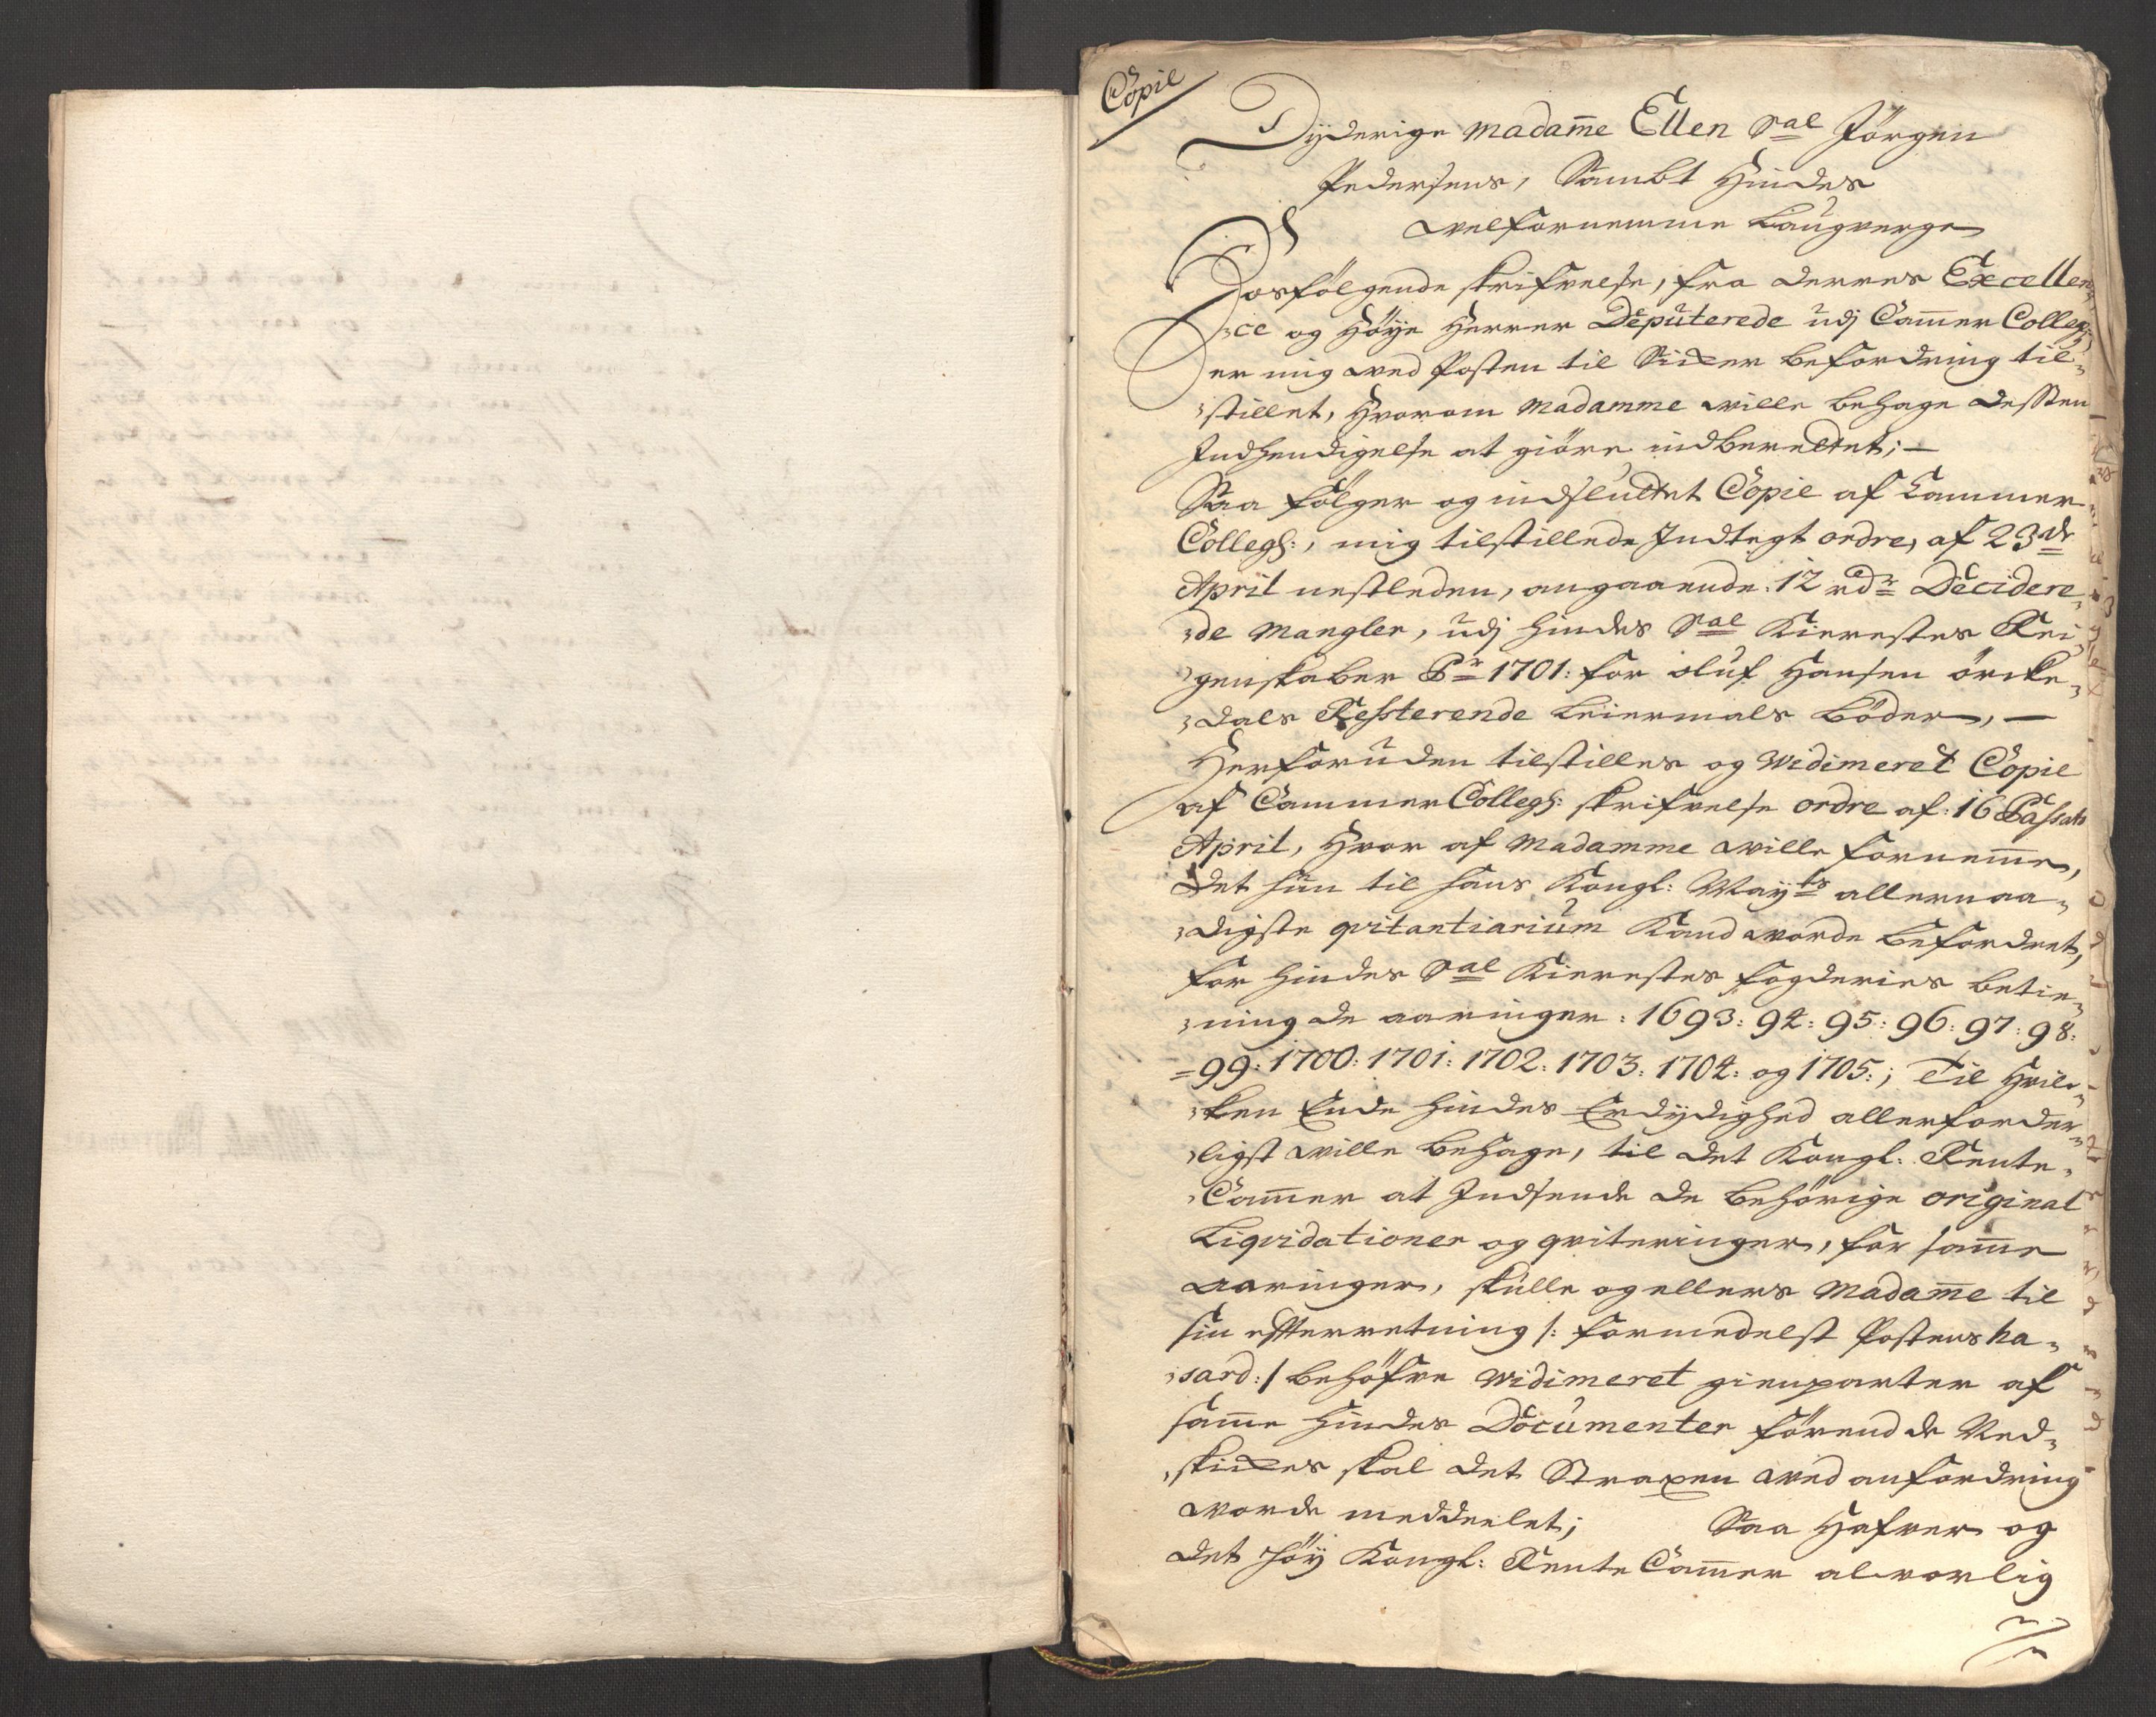 Copie
Dyderige Madame Ellen Sal Jörgen
Pedersens, Sambt Hindes
Welfornemme Laugverge
Hosfölgende skrifvelse, fra Derres Excellen¬
ce og Höÿe Herrer Deputerede udj Cammer Colleg:
er mig ved Posten til Sicker befordring til¬
stillet, Hvorom Madamme wille behage dessen
Indhendigelse at giöre indberettet; —
Saa fölger og indsluttet Copie af Cammer
Collegs:, mig tilstillede Indtegt ordre, af 23de
April nestleden, angaaende 12 rdr Decidere¬
de Mangler, udj hindes Sal Kierestes Rei¬
genskaber Pr 1701: for oluf Hansen örcke¬
dals Resterende Leiermals böder, —
Herforuden tilstilles og Widimeret Copie
af Cammer Collegs: skrifvelse ordre af: 16 Passato
April, Hvor af Madamme wille fornemme,
Det hun til hans Kongl: Mayts allernaa¬
digste qvitantiarium Kand worde befordret,
for hindes Sal Kierestes fogderies betie¬
ning de aaringer: 1693: 94: 95: 96: 97: 98:
=99: 1700: 1701: 1702: 1703: 1704: og 1705:; Til Hvil¬
ken Ende hindes Erdydighed allerforder¬
ligst wille behage, til det Kongl: Rente¬
Cammer at Indsende de behörige original
Liqvidationer og qviteringer, for samme
aaringer, skulle og ellers Madame til
sin efterretning /: formedelst Postens ha¬
sard: / behöfve widimeret gienparter af
samme hindes Documenter förend de Ned¬
skickes skal det Straxen wed anfordring
worde meddeelet; Saa Hafver og
det höÿ Kongl: Rente Cammer alvorlig